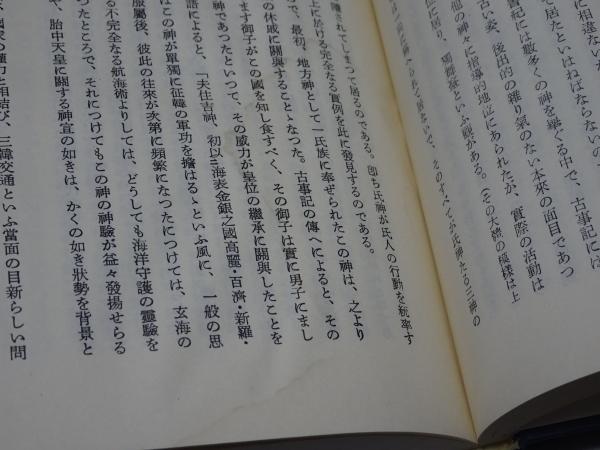 に相違ない
て居たといはねばならない
古事記には
書紀には數多くの神を擧ぐる中で、
古い姿、後出的の雜り氣のない本來の面目であつ
他の神々に指導的地位にあられたが、實際の活動は
に居り、獨擅臺といふ觀がある。(その大體の模樣は上
そのすべてが氏神たる三神の
隱されてしまつて居るのである。卽ち氏神が氏人の行動を統率す
上に於ける完全なる實例を此に發見するのである。
で、最初、地方神として一氏族に奉ぜられたこの神は、之より
の休戚に關與することゝなつた。古事記の傳へによると、その
ます御子がこの國を知し食すべく、その御子は實に男子にまし
神であつたといつて、その威力が皇位の繼承に關與したことを
語によると、「夫住吉神、初以三海表金銀之國高麗・百濟・新羅・
はこの神が單獨に征韓の軍功を擔はるゝといふ風に、一般の思
服屬後、彼此の往來が次第に頻繁になつたにつけては、玄海の
る不完全なる航海術よりしては、どうしても海洋守護の靈驗を
つたところで、それにつけてもこの神の神驗が益々發揚せらる
や、胎中天皇に關する神宣の如きは、かくの如き狀勢を背景と
權力と相結び、三韓交通といふ當面の目新らしい問